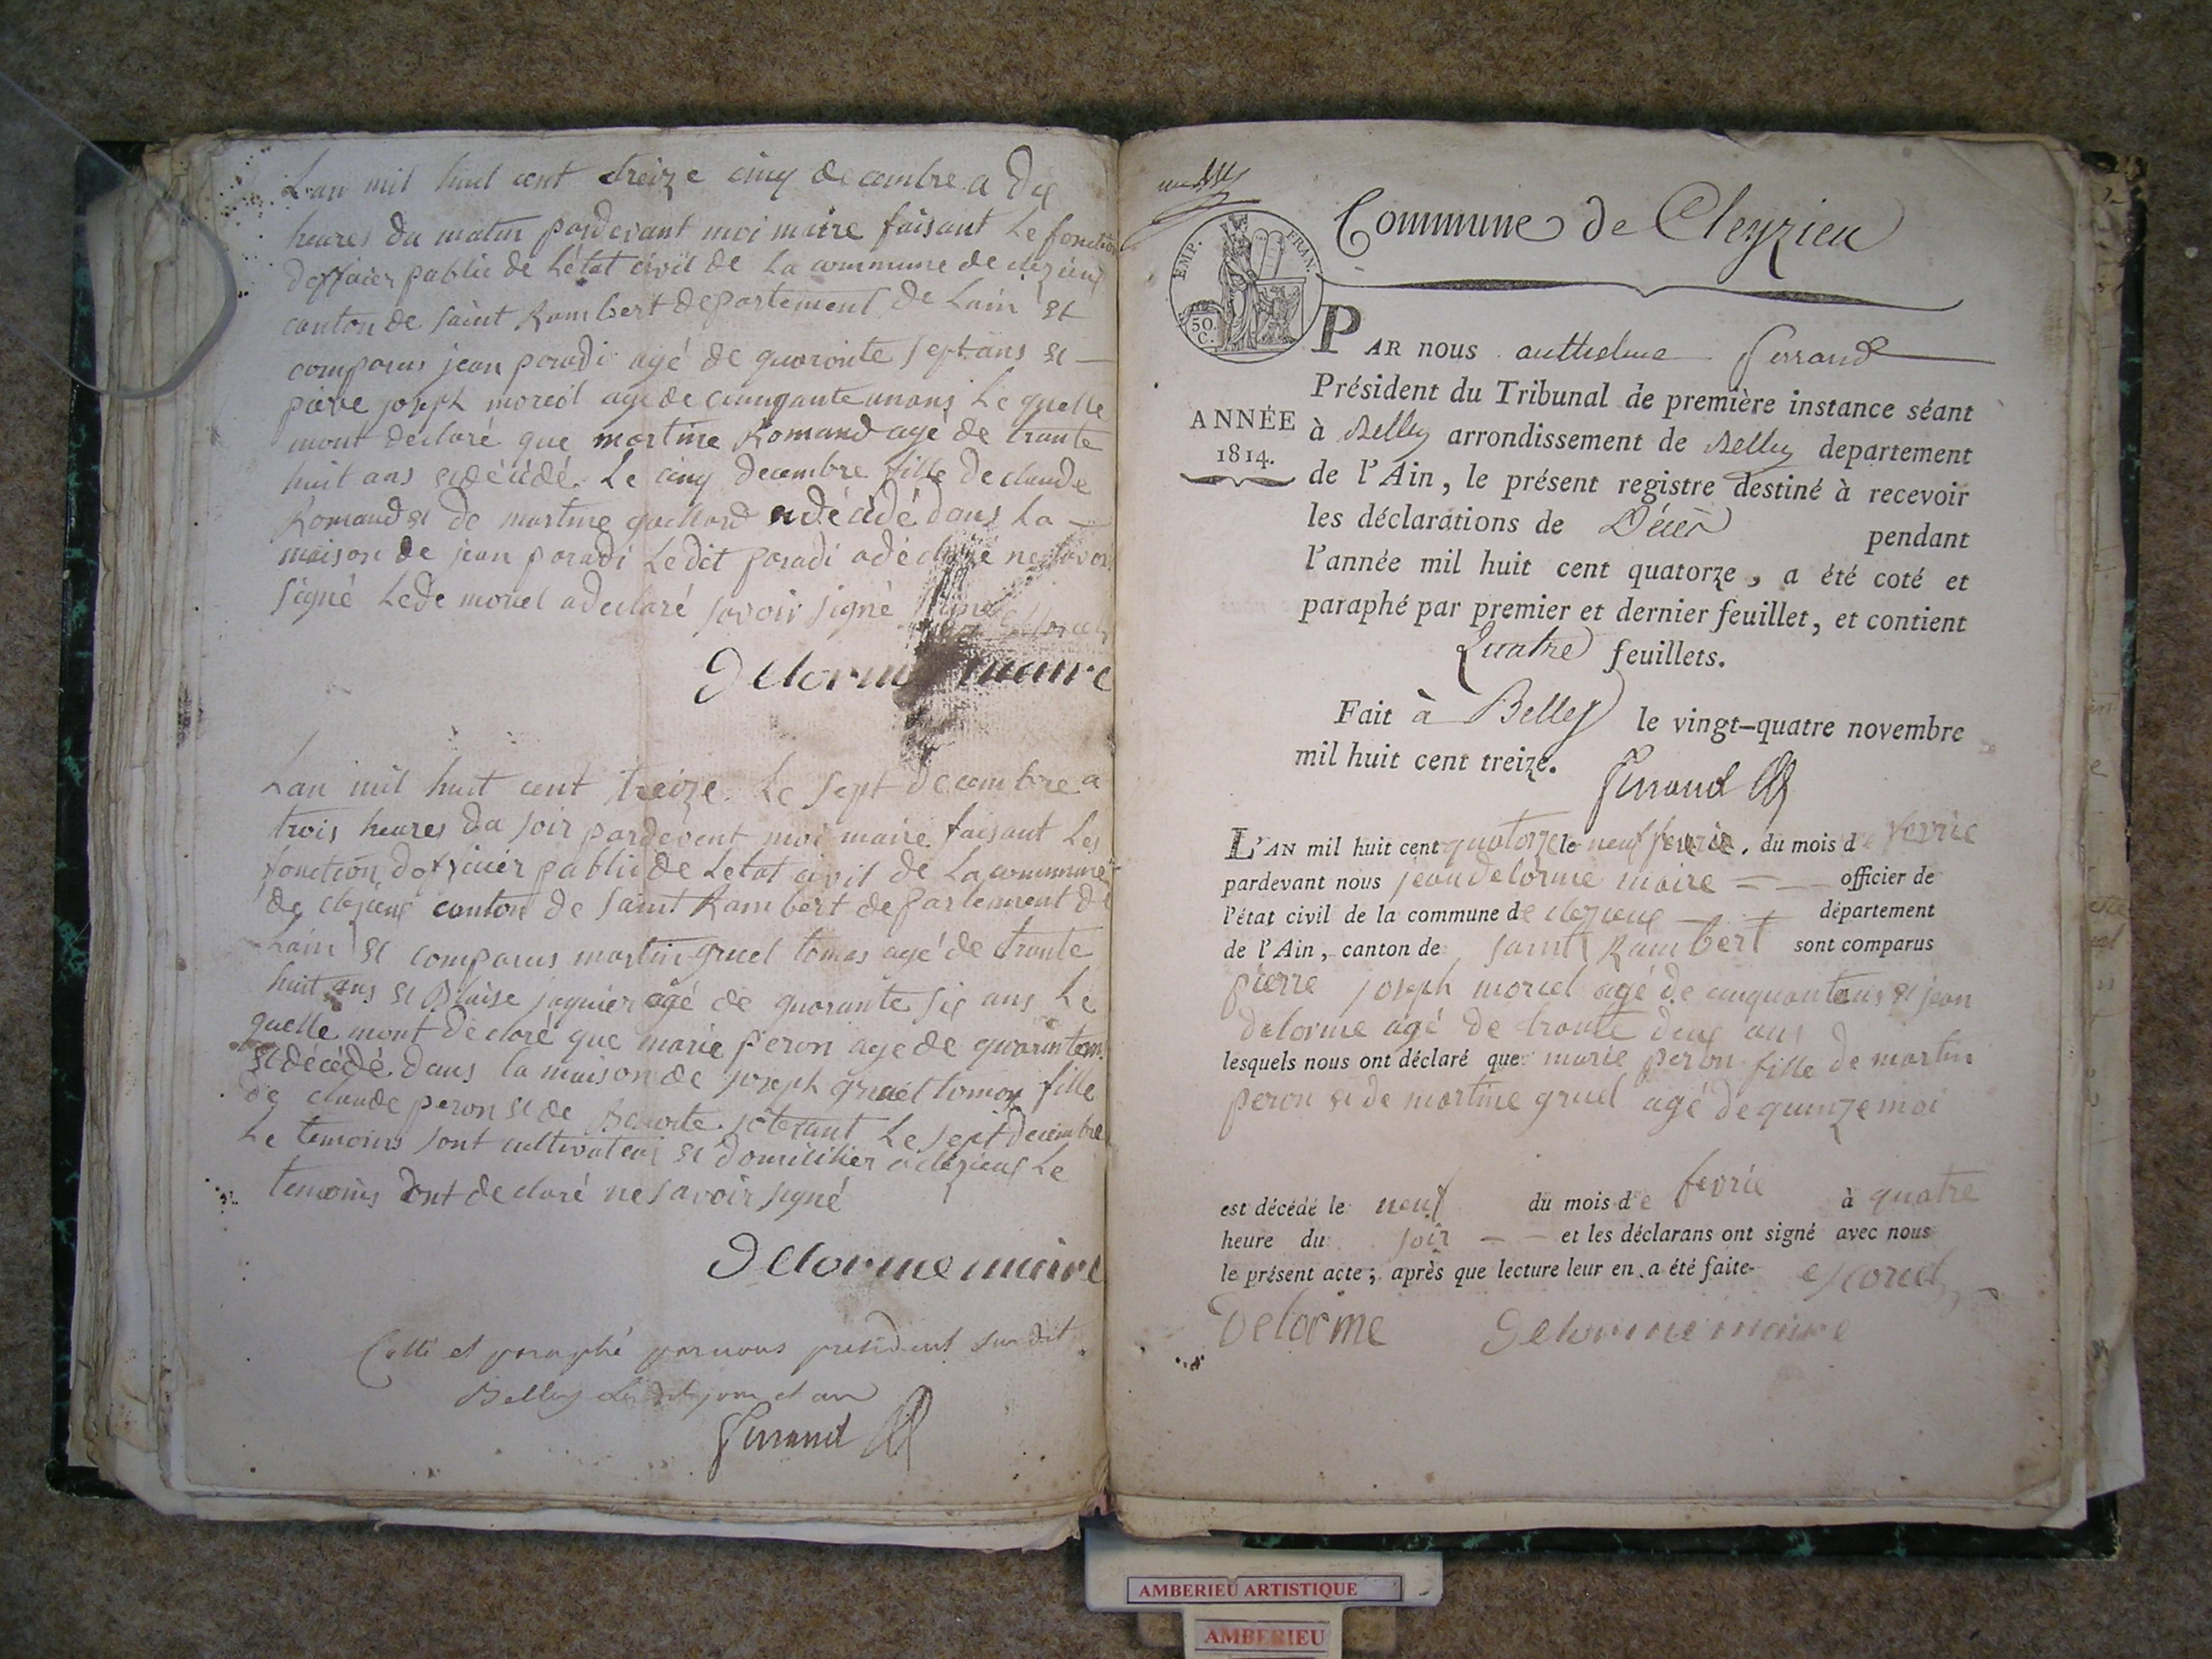 Lan mil huit cent treize cinq decembre a dix
heures du matin pardevant moi maire faisant le fonction
dofficier public de Létat civil de La commune de
canton de saint Rambert departement de Lain et
comparus jean paradi agé de quaronte sept ans et
joseph agé de ans Le quelle
mont declaré que martine Romand agé de trante
huit ans et décédé. Le cinq decembre fille de claude
Romand et de martine décédé dans la
maison de jean paradi Ledit paradi a
signé Lede morel adeclaré savoir signé
Delorme maire
Lan mil huit cent treize. Le sept decembre a
trois heures du soir pardevent moi maire faisant Les
fonction dofficier public de Letat civil de La commune
de canton de saint Rambert departement de
Lain et comparus martin gruel tomas agé de trante
huit ans et Blaise jaquier agé de quarante six ans Le
quelle mont declaré que marie peron age de
et décédé. dans la maison de joseph gruel fille
de claude peron et de Le sept decembre
Le temoins sont cultivateur et domicilier Le
temoins ont declaré ne savoir signé
Delorme maire
Cotté et paraphé par nous president susdit
Belley Les dits jour et an
Ferrand
Commune de Cleyzieu
EMP. FRAN.
50.
C.
ANNÉE
1814.
PAR nous anthelme Ferrand
Président du Tribunal de première instance séant
à Belley arrondissement de Belley departement
de l'Ain, le présent registre destiné à recevoir
les déclarations de Décès pendant
l'année mil huit cent quatorze, a été coté et
paraphé par premier et dernier feuillet, et contient
Quatre feuillets.
Fait à Belley le vingt-quatre novembre
mil huit cent treize.
Ferrand
L'AN mil huit cent quatorze le neuf fevrie, du mois de fevrie
pardevant nous jean delorme maire officier de
l'état civil de la commune de département
de l'Ain, canton de saint Rambert sont comparus
pierre joseph morel agé de cinquante ans et jean
delorme agé de trante deux ans
lesquels nous ont déclaré que marie peron fille de martin
peron et de martine gruel agé de quinze moi
est décédé le neuf du mois de fevrie à quatre
heure du soir et les déclarans ont signé avec nous
le présent acte; après que lecture leur en a été faite. Morel
Delorme Delorme maire
AMBERIEU ARTISTIQUE
AMBERIEU